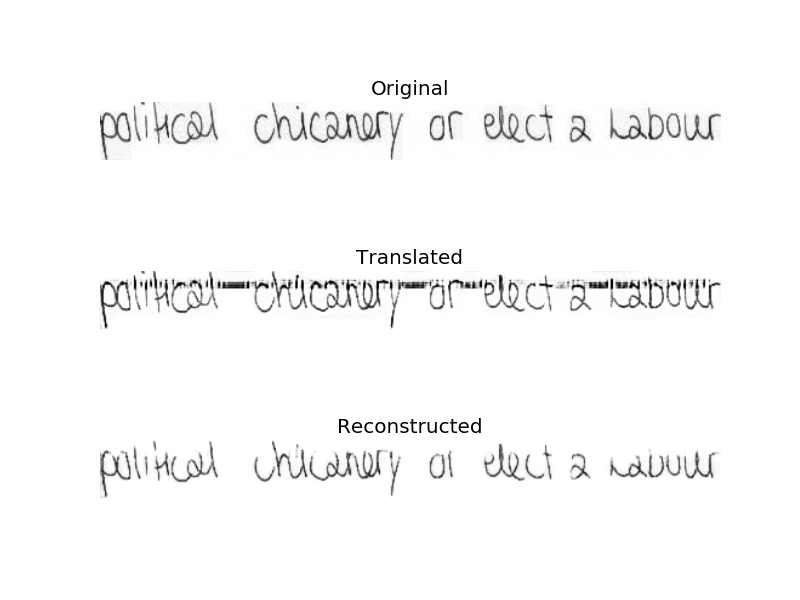 Original
political chicanery or elect a Labour
Translated
political chicanery or elect a Labour
Reconstructed
political chicanery or elect a Labour